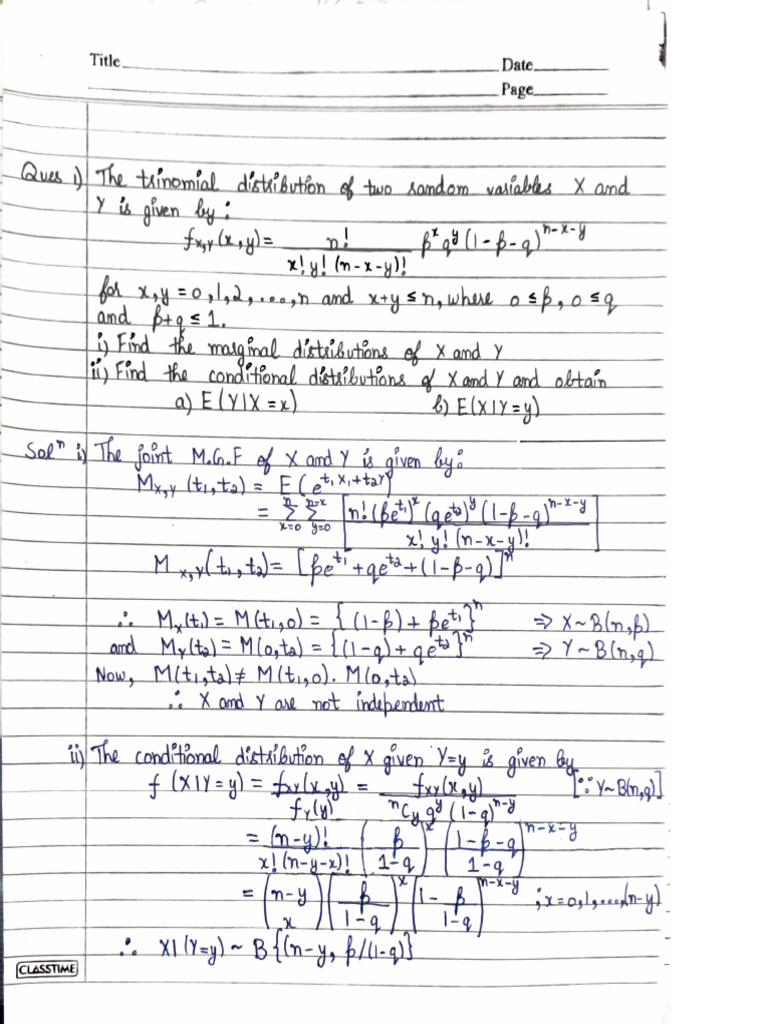 Title
Date
Page
Ques 1) The trinomial distribution of two random variables X and
Y is given by:
f_{X,Y}(x,y) = \frac{n!}{x! y! (n-x-y)!} p^x q^y (1-p-q)^{n-x-y}
for x,y = 0,1,2,....,n and x+y ≤ n, where 0 ≤ p, 0 ≤ q
and p+q ≤ 1.
i) Find the marginal distributions of X and Y
ii) Find the conditional distributions of X and Y and obtain
a) E(Y|X=x) b) E(X|Y=y)
Solⁿ i) The joint M.G.F of X and Y is given by:
M_{X,Y}(t₁,t₂) = E(e^{t₁X₁+t₂Y})
= \sum_{x=0}^{n} \sum_{y=0}^{n-x} [\frac{n! (pe^{t₁})^x (qe^{t₂})^y (1-p-q)^{n-x-y}}{x! y! (n-x-y)!}]
M_{X,Y}(t₁,t₂) = [pe^{t₁} + qe^{t₂} + (1-p-q)]^n
∴ M_X(t₁) = M(t₁,0) = {(1-p) + pe^{t₁}}^n ⇒ X ~ B(n,p)
and M_Y(t₂) = M(0,t₂) = {(1-q) + qe^{t₂}}^n ⇒ Y ~ B(n,q)
Now, M(t₁,t₂) ≠ M(t₁,0). M(0,t₂)
∴ X and Y are not independent
ii) The conditional distribution of X given Y=y is given by
f(X|Y=y) = \frac{f_{XY}(x,y)}{f_Y(y)} = \frac{f_{XY}(x,y)}{^nC_y q^y (1-q)^{n-y}} [∵ Y~B(n,q)]
= \frac{(n-y)!}{x! (n-y-x)!} (\frac{p}{1-q})^x (\frac{1-p-q}{1-q})^{n-x-y}
= \binom{n-y}{x} (\frac{p}{1-q})^x (1-\frac{p}{1-q})^{n-x-y} ; x=0,1,...,(n-y)
∴ X|(Y=y) ~ B{(n-y, p/(1-q)}
CLASSTIME